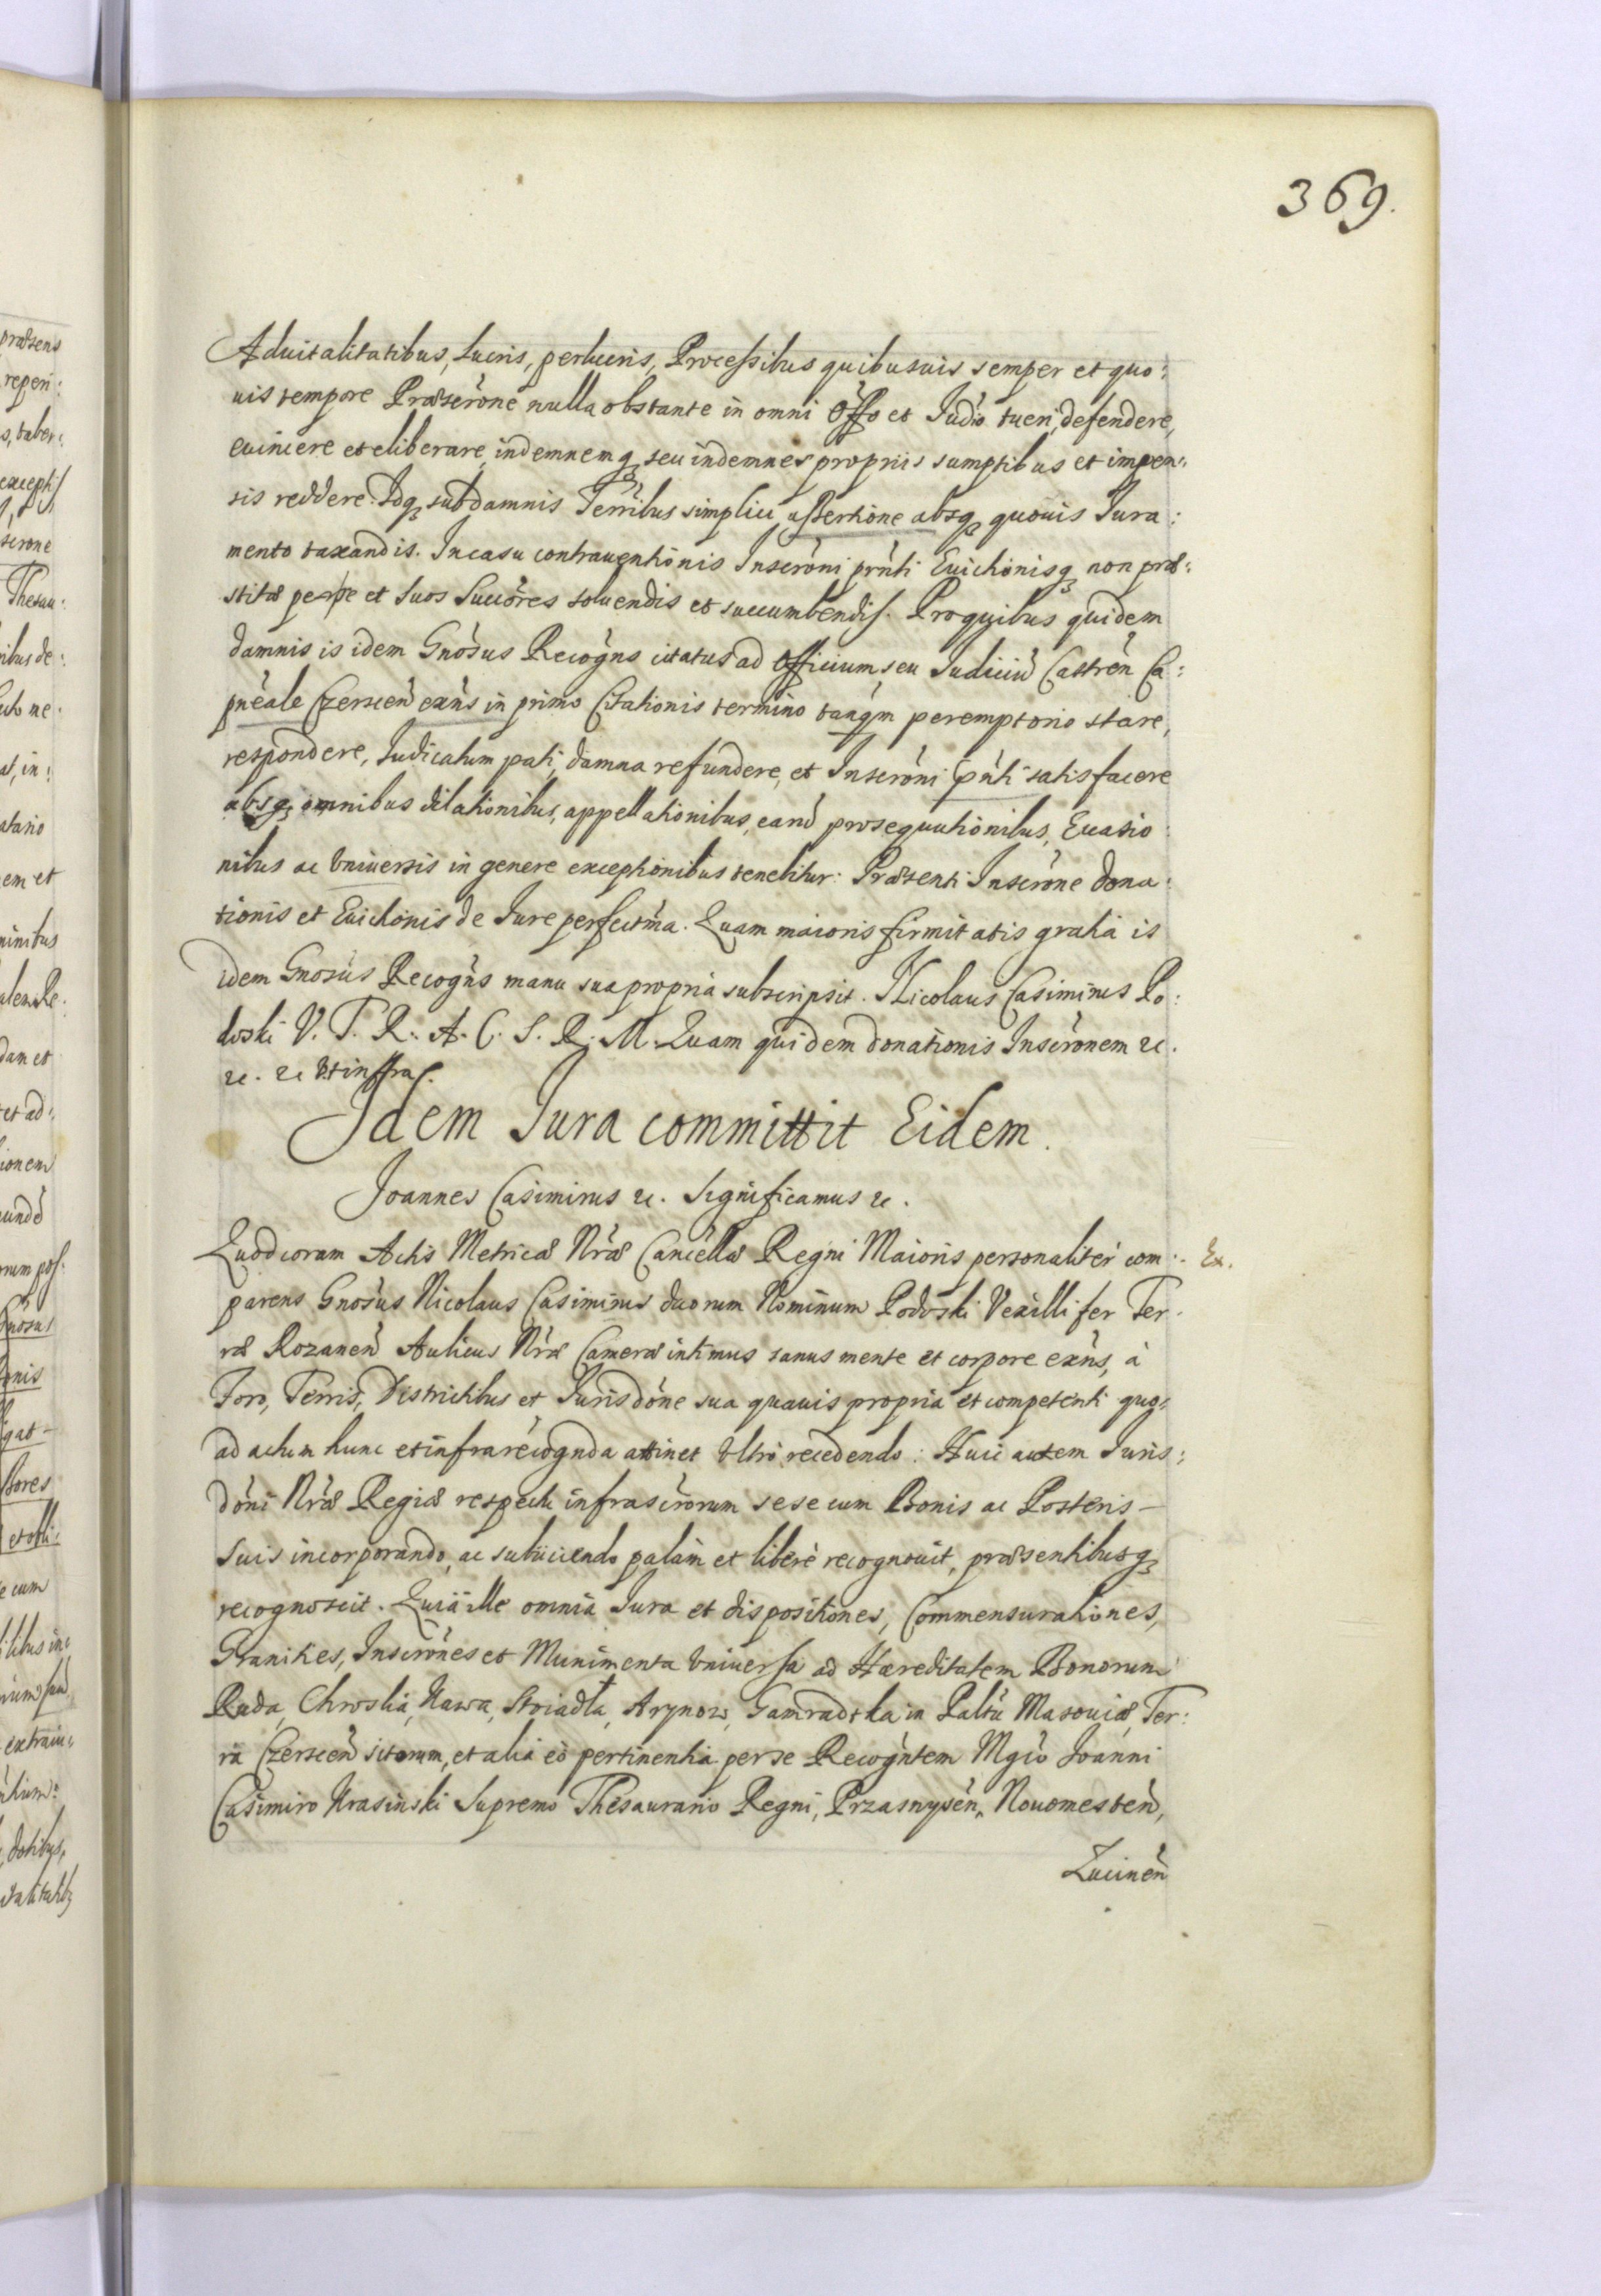 369.
Aduitalitatibus, Lucris, perlucris, Processibus quibusuis semper et quo:
uis tempore Præscrõne nulla obstante in omni Offo et Judõ tueri, defendere,
euincere et eliberare, indemnemq seu indemnes propriis sumptibus et impen:
sis reddere. Idq sub damnis Terribus simplici assertione absq quouis Jura:
mento taxandis. In casu contrauentionis Inscrõni prñti Euictionisq non præ:
stitæ per se et Suos Succõres soluendis et succumbendis. Pro quibus quidem
damnis is idem Gnõsus Recogñs citatus ad Officium seu Judiciũ Castreñ Ca:
pnẽale Czersceñ exñs in primo Citationis termino tanq̃m peremptorio stare,
respondere, Judicatum pati, damna refundere, et Inscrõni prñti satisfacere
absq omnibus dilationibus, appellationibus, earũ prosequutionibus, Euasio:
nibus ac Vniuersis in genere exceptionibus tenebitur: Præsenti Inscrõne dona:
tionis et Euictionis de Jure perfectma. Quam maioris firmitatis gratia is
idem Gnosũs Recogñs manu sua propria subscripsit. Nicolaus Casimirus Po:
doski V. T. R. A. C. S. R. M. Quam quidem donationis Inscrõnem &c.
&c. &c Vt inffra.
Idem Jura committit Eidem.
Joannes Casimirus &c. Significamus &c.
Quod coram Actis Metricæ Nrãæ Cancellæ Regni Maioris personaliter com: Ex.
parens Gnosũs Nicolaus Casimirus duorum Nominum Podoski Vexillifer Ter:
ræ Rozaneñ Aulicus Nræ Cameræ intimus sanus mente et corpore exñs, à
Foro, Terris, Districtibus et Jurisdõne sua quauis propria et competenti quo:
ad actum hunc et infrarecognda attinet Vltro recedendo: Huic autem Juris:
dõni Nræ Regiæ respectu infrascrõrum sese cum Bonis ac Posteris –
Suis incorporando, ac subiiciendo palam et liberè recognouit, præsentibusq
recognoscit. Quia ille omnia Jura et dispositiones, Commensurationes,
Granities, Inscrõnes et Munimenta Vniuersa ad Hæreditatem Bonorum
Ruda, Chroslia, Nawa, Stoiadła, Arynow, Gamradtka in Paltũ Masouiæ, Ter:
rã Czersceñ sitorum, et alia eò pertinentia per se Recogñtem Mgco Joanni
Casimiro Krasinski Supremo Thesaurario Regni, Przasnyseñ, Nouomesteñ,
Lucineñ